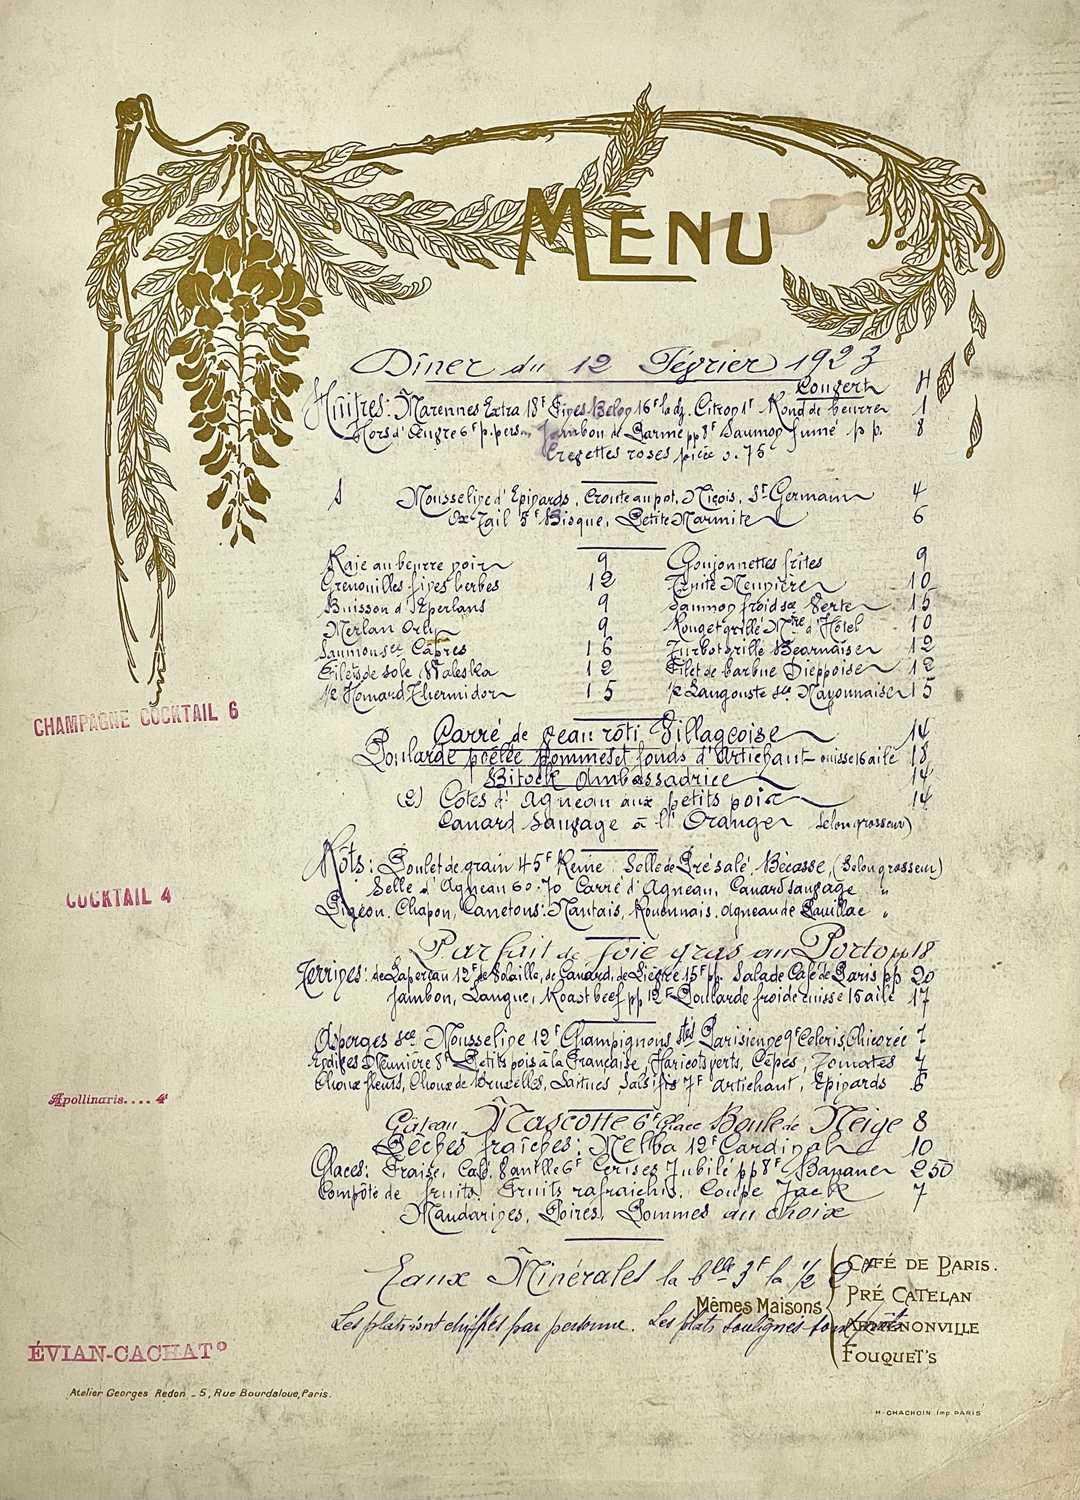 MENU
Dîner du 12 Février 1923
Couvert 4
Huîtres: Marennes Extra 18F Fines Belon 16F la dz. Citron 1F Rond de beurre 1
Hors d'Œuvre 6F p. pers. Jambon de Parme pp 8F Saumon fumé pp. 8
Crevettes roses pièce 0.75
Mousseline d'Epinards, Croute au pot, Niçois, St Germain 4
Ox Tail 5F Bisque, Petite Marmite 6
Raie au beurre noir 9 Goujonnettes frites 9
Grenouilles fines herbes 12 Truite Meunière 10
Buisson d'Eperlans 9 Saumon froid sce Verte 15
Merlan Orly 9 Rouget grillé Mtre d'Hôtel 10
Saumon sce Câpres 16 Turbot grillé Béarnaise 12
Filets de sole Waleska 12 Filet de barbue Dieppoise 12
½ Homard Thermidor 15 ½ Langouste sce Mayonnaise 15
CHAMPAGNE COCKTAIL 6
Carré de veau rôti Villageoise 14
Poularde poêlée Pommes et fonds d'Artichaut cuisse 16 aile 18
Bitock Ambassadrice 14
(2) Côtes d'Agneau aux petits pois 14
Canard Sauvage à l'Orange (selon grosseur)
Rôts: Poulet de grain 45F Reine Selle de Pré salé, Bécasse, (Selon grosseur)
COCKTAIL 4
Selle d'Agneau 60.70 Carré d'Agneau, Canard sauvage "
Pigeon, Chapon, Canetons: Nantais, Rouennais, Agneau de Pauillac "
Parfait de foie gras au Porto pp 18
Terrines: de Lapereau 12F de Volaille, de Canard, de Lièvre 15F pp. Salade Café de Paris pp 20
Jambon, Langue, Roast beef pp 12F Poularde froide cuisse 15 aile 17
Asperges sce Mousseline 12F Champignons stés Parisienne 9F Céleris, Chicorée 7
Endives Meunière 8F Petits pois à la Française, Haricots verts, Cèpes, Tomates 7
Choux fleurs, Choux de Bruxelles, Laitues Salsifis 7F Artichaut, Epinards 6
Apollinaris.... 4
Gâteau Mascotte 6F Glace Boule de Neige 8
Pêches fraîches: Melba 12F Cardinal 10
Glaces: Fraise, Café, Vanille 6F Cerises Jubilé pp 8F Banane 2 50
Compôte de fruits, Fruits rafraichis, Coupe Jack 7
Mandarines, Poires, Pommes au choix
Eaux Minérales la blle 3F la ½ 2F
Les plats sont chiffrés par personne. Les plats soulignés sont prêts
Mêmes Maisons
CAFÉ DE PARIS.
PRÉ CATELAN
ARMENONVILLE
FOUQUET'S
ÉVIAN-CACHAT
Atelier Georges Redon - 5, Rue Bourdaloue, Paris.
H. CHACHOIN Imp. PARIS